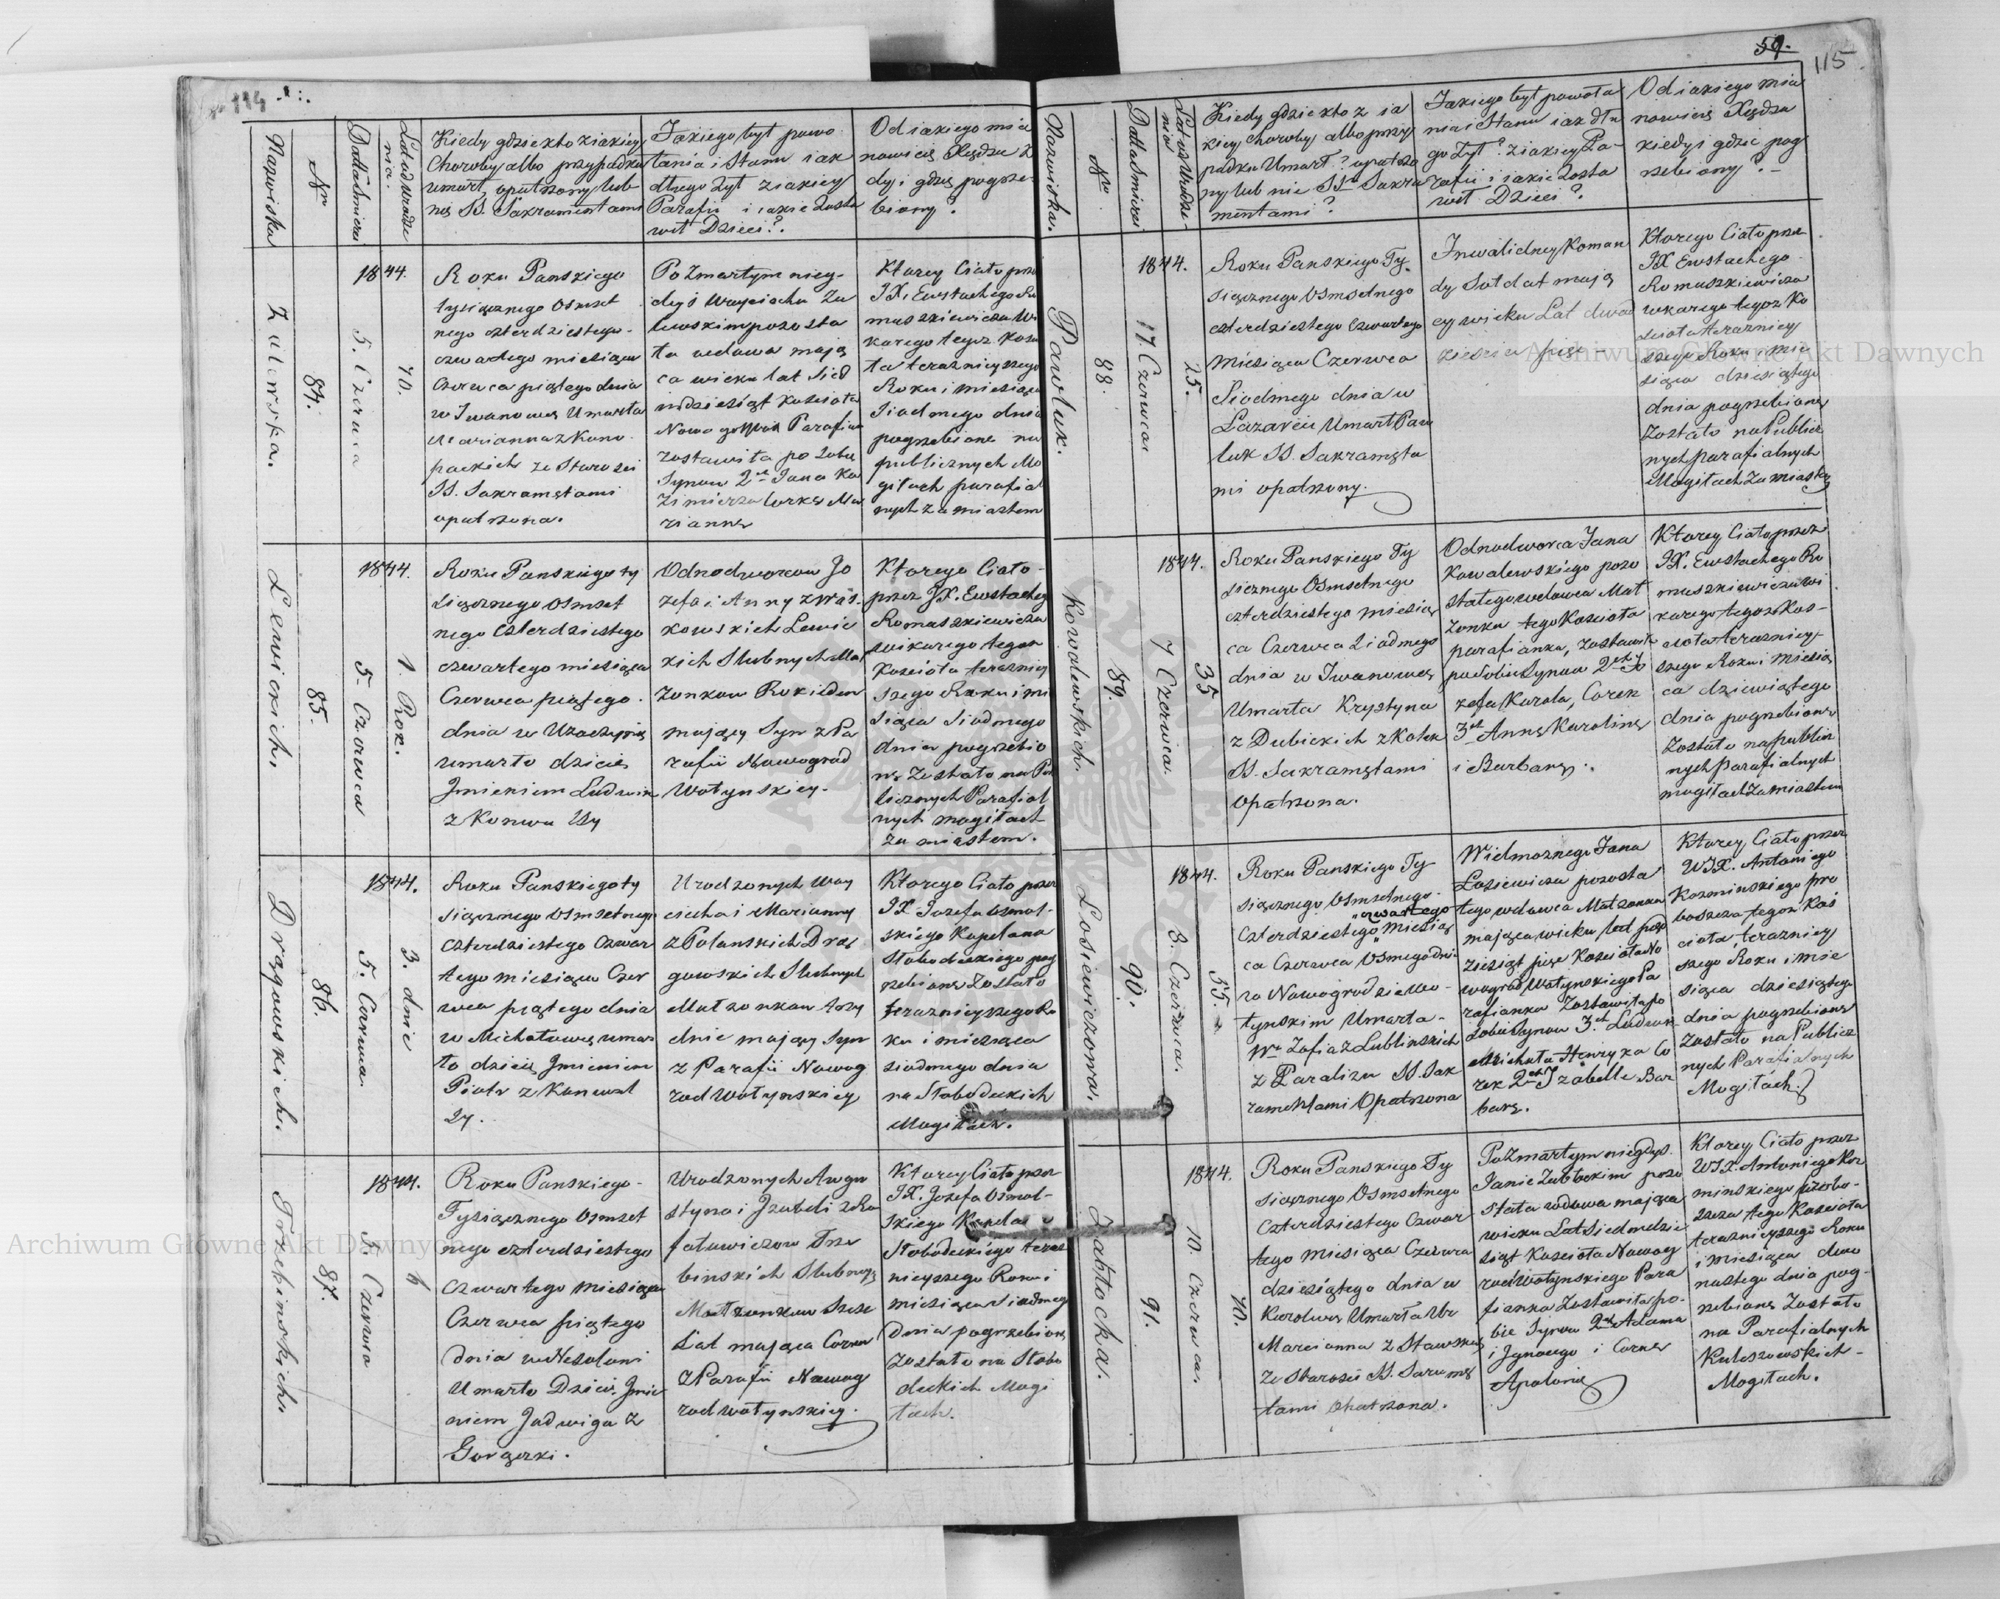 114
Nazwiska
Nr
Datta Smierci
Lat od Urodze
nia.
Kiedy gdzie kto z iakiey
Choroby albo przypadku
umarł, opatrzony lub
nie SS. Sakramentami
Jakiego był powo
łania i Stanu iak
długo Żył z iakiey
Parafii i iakie Zosta
wił Dzieci?
Od iakiego mia
nowicie Xiędza k
dy i gdzie pogrze
biony?
Zalewska.
84.
1844.
5. Czerwca
70.
Roku Panskiego
tysiącznego Osmset
nego czterdziestego
czwartego miesiąca
Czerwca piątego dnia
w Iwanowce Umarła
Maryanna z Kono
packich ze Starosci
SS. Sakramętami
opatrzona.
Po Zmartym nieg
dyś Woyciechu Za
lewskim pozosta
ła wdowa mają
ca wieku lat Sied
mdziesiąt Koscioła
Parafian
zostawiła po Sobie
Synow 2ch Jana Ka
zimierza Corkę Ma
riannę
Ktorey Ciało prze
JX. Ewstachego Ro
maszkiewicza Wi
karego tegoż Kosc
ła teraznieyszego
Roku i miesiąca
Siodmego dnia
pogrzebione na
publicznych Mo
giłach parafial
nych za miastem
Lewickich.
85.
1844.
5. Czerwca
1. Rok.
Roku Panskiego ty
siącznego Osmset
nego Czterdziestego
czwartego miesiąca
Czerwca piątego
dnia w
umarło dziecię
Jmieniem Ludwik
z Konwulsy
Odnodworcow Jo
zefa i Anny z Was
kowskich Lewic
kich Slubnych Mał
żonkow Rok ieden
maiący Syn z Pa
rafii Nowograd
Wołynskiey.
Ktorego Ciało
przez JX. Ewstacheg
Romaszkiewicza
wikarego tegoż
Koscioła terazniey
szego Roku i mie
siąca Siodmego
dnia pogrzebio
ne Zostało na Pub
licznych Parafial
nych mogiłach
za miastem.
Drągowskich.
86.
1844.
5. Czerwca.
3. dnie
Roku Panskiego ty
siącznego Osmsetnego
Czterdziestego Czwar
tego miesiąca Czer
wca piątego dnia
w Michałowce umar
ło dziecię Jmieniem
Piotr z Konwul
zy.
Urodzonych Woy
ciecha i Marianny
z Polanskich Drą
gowskich Slubnych
Małzonkow trzy
dnie maiący Syn
z Parafii Nowog
rod Wołynskiey
Ktorego Ciało przez
JX. Jozefa Osmol
skiego Kapelana
Słobodeckiego pog
rzebione Zostało
teraznieyszego Ro
ku i miesiąca
siodmego dnia
na Słobodeckich
Mogiłach.
Trzebinskich.
87.
1844.
5. Czerwca
6
Roku Panskiego
Tysiącznego Osmset
nego czterdziestego
czwartego miesiąca
Czerwca piątego
dnia w Nesoloni
Umarło Dziecię Jmie
niem Jadwiga z
Gorączki.
Urodzonych Augu
styna i Jzabeli z Ra
fałowiczow Trze
binskich Slubnych
Małżonkow Szesc
Lat mająca Corka
z Parafii Nowog
rod wołynskiey.
Ktorey Ciało przez
JX. Jozefa Osmol
skiego Kapelana
Słobodeckiego teraz
nieyszego Roku i
miesiąca siodmego
Dnia pogrzebione
zostało na Słobo
deckich Mogi
łach.
59.
115
Nazwiska.
Nr
Datta Smierci
Lat od Urodze
nia
Kiedy gdzie kto z ia
kiey Choroby albo przy
padku Umarł? opatrzo
ny lub nie SS. Sakra
mentami?
Jakiego był powoła
nia i Stanu iak dłu
go Żył? z iakiey Pa
rafii i iakie Zosta
wił Dzieci?
Od iakiego mia
nowicie Xiędza
kiedy i gdzie pog
rzebiony?
Pawluk.
88.
1844.
17. Czerwca
25.
Roku Panskiego Ty
siącznego Osmsetnego
czterdziestego Czwartego
Miesiąca Czerwca
Siodmego dnia w
Lazarecie Umarł Paw
luk SS. Sakramęta
mi opatrzony.
Jnwalidney Koman
dy Sołdat mają
cy wieku Lat dwad
ziescia pięc
Ktorego Ciało prze
JX Ewstachego
Romaszkiewicza
wikarego tegoż Ko
scioła terazniey
szego Roku i mie
siąca dziesiątego
dnia pogrzebione
Zostało na Public
nych parafialnych
Mogiłach za miastem
Kowalewskich.
89.
1844.
7 Czerwca.
35
Roku Panskiego Ty
siecznego Osmsetnego
czterdziestego miesią
ca Czerwca Siodmego
dnia w Iwanowce
Umarła Krystyna
z Dubickich z Kolek
SS. Sakramętami
Opatrzona.
Odnodworca Jana
Kowalewskiego pozo
stałego wdowca Mał
żonka tego Koscioła
parafianka, Zostawiła
po Sobie Synow 2ch Jo
zefa Karola, Corek
3ch Annę Karolinę
i Barbarę.
Ktorey Ciało przez
JX. Ewstachego Ro
maszkiewicza wi
karego tegoż Kos
cioła terazniey
szego Roku i Miesią
ca dziewiątego
dnia pogrzebione
Zostało na publicz
nych Parafialnych
mogiłach za miastem
Losiewiczowa.
90.
1844.
8. Czerwca.
55.
Roku Panskiego Ty
siącznego Osmsetnego
czwartego
Czterdziestego miesią
ca Czerwca Osmego dnia
w Nowogrodzie Wo
łynskim Umarła
Wa Zofia z Lublinskich
z Paraliżu SS. Sak
ramentami Opatrzona
Wielmożnego Jana
Łosiewicza pozosta
łego wdowca Małżonka
mająca wieku lat pięć
dziesiąt pięc Koscioła No
wograd Wołynskiego Pa
rafianka Zostawiła po
Sobie Synow 3ch Ludwik
Michała Henryka Co
rek 2ch Jzabelle Bar
barę.
Ktorey Ciało przez
WJX. Antoniego
Kozminskiego pro
boszcza tegoż Kos
cioła terazniey
szego Roku i mie
siąca dziesiątego
dnia pogrzebione
Zostało na Publicz
nych Parafialnych
Mogiłach.
Zabłocka.
91.
1844.
10. Czerwca.
70.
Roku Panskiego Ty
siącznego Osmsetnego
Czterdziestego Czwar
tego Miesiąca Czerwca
dziesiątego dnia w
Karolowce Umarła Ur.
Marcianna z Stawskich
ze Starosci SS. Sakramę
tami Opatrzona.
Po Zmartym niegdys
Janie Zabłockim pozo
stała wdowa mająca
wieku Lat Siedmdzie
siąt Koscioła Nowog
rod Wołynskiego Para
fianka Zostawiła po
bie Synow 2ch Adama
i Jgnacego i Corkę
Apolonię
Ktorey Ciało przez
WJX Antoniego Koz
minskiego probo
szcza tego Koscioła
teraznieyszego Roku
i miesiąca dwu
nastego dnia pog
rzebione Zostało
na Parafialnych
Kuleszowskich
Mogiłach.
Archiwum Główne Akt Dawnych
Archiwum Główne Akt Dawnych